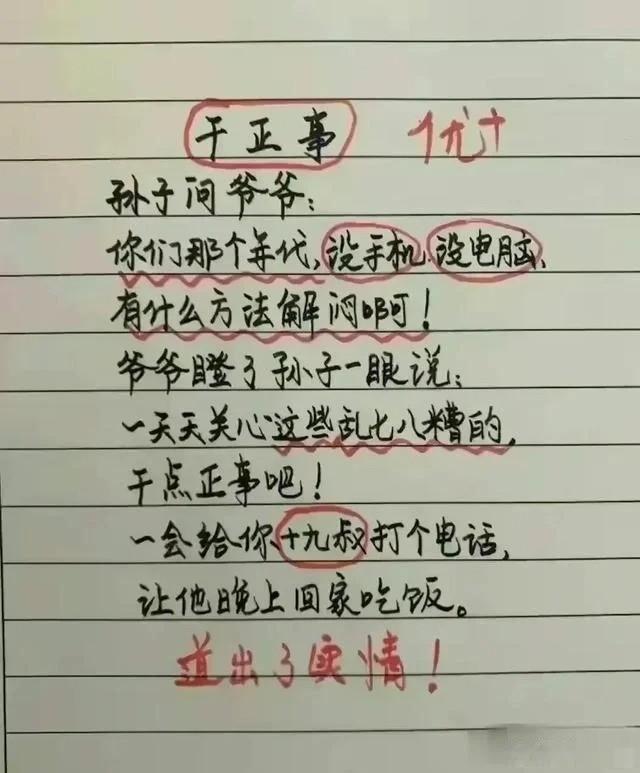 干正事 优+
孙子问爷爷：
你们那个年代，没手机.没电脑、
有什么方法解闷啊！
爷爷瞪了孙子一眼说：
一天天关心这些乱七八糟的，
干点正事吧！
一会给你十九叔打个电话，
让他晚上回家吃饭。
道出了实情！